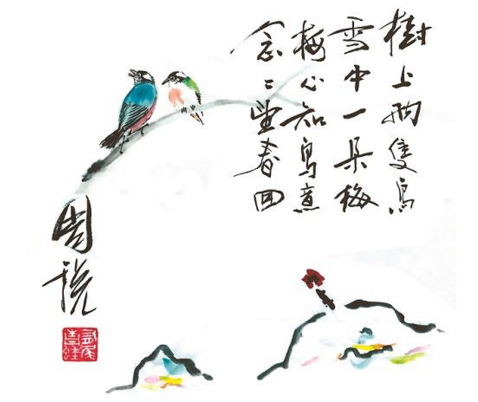 樹上兩隻鳥
雪中一朵梅
梅心知鳥意
念〻望春回
周說